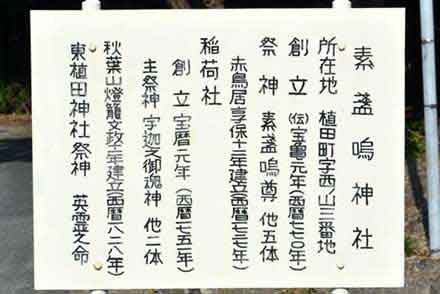 素盞嗚神社
所在地 植田町字西ノ山三番地
創立(伝)宝亀元年(西暦七七〇年)
祭神 素盞嗚尊 他五体
赤鳥居享保十二年建立(西暦七二七年)
稲荷社
創立 宝暦元年(西暦七五一年)
主祭神 宇迦之御魂神 他二体
秋葉山燈籠文政十一年建立(西暦八二八年)
東植田神社祭神 英霊之命